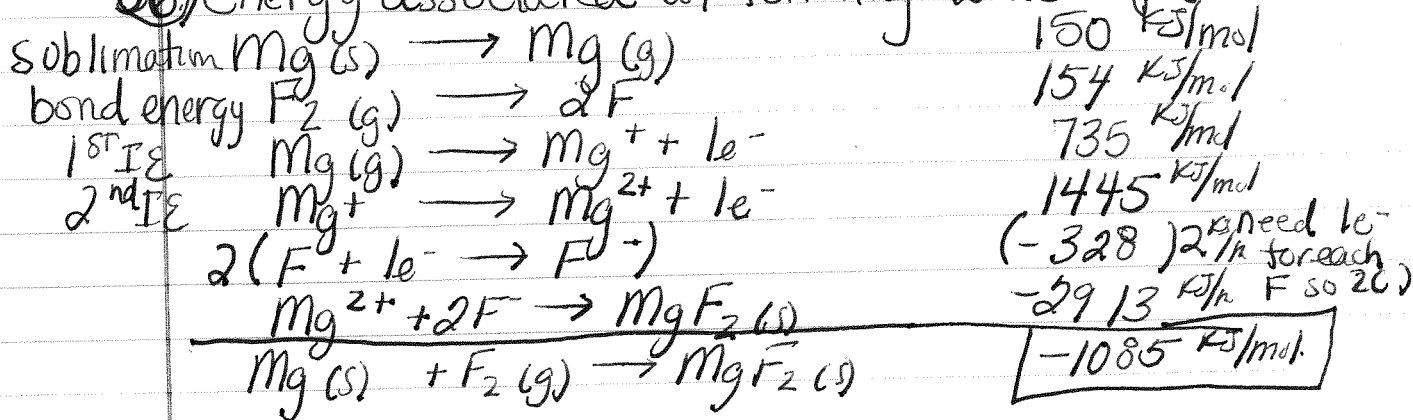 Energy associated
sublimation Mg (s) → Mg (g) 150 KJ/mol
bond energy F₂ (g) → 2F 154 KJ/mol
1ST IE Mg (g) → Mg⁺ + 1e⁻ 735 KJ/mol
2nd IE Mg⁺ → Mg²⁺ + 1e⁻ 1445 KJ/mol
2(F + 1e⁻ → F⁻) (-328)2 KJ/n need 1e⁻ for each F so 2( )
Mg²⁺ + 2F⁻ → MgF₂ (s) -2913 KJ/n
Mg (s) + F₂ (g) → MgF₂ (s) -1085 KJ/mol.